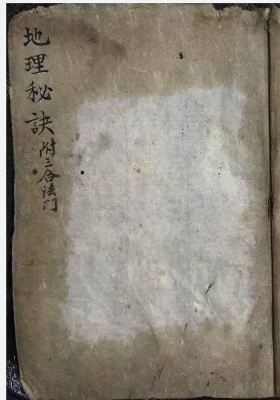 地理秘訣
附三合法门